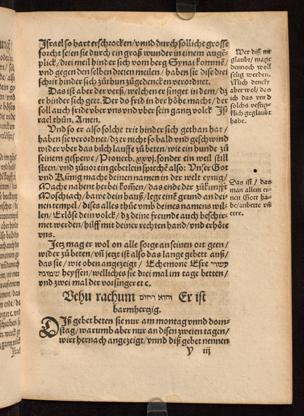 Israel so hart erschrocken / vnnd durch sollicht grosse
forcht seien sie durch ein groß wunder in einem augē
plick / drei meil hinder sich vom berg Synai kommē /
vnd gegen den selben dreien meilen / haben sie dise drei
schrit hinder sich zůthun zůgedencken verordinet.
Das ist aber der verß / welchen er singet in dem / dz
er hinder sich geet. Der do frid in der höhe macht / der
soll auch frid vber vns vnd vber sein gantz volck Is
rael thůn. Amen.
Vnd so er also solche trit hinder sich gethan hat /
haben sie verordnet / dz er nicht so bald vnd geschwind
wider vber das bůch lauffe zů beten / wie ein hunde zů
seinem gespewe / Prouerb. xxvj. sonder ein weil still
steen / vnd zůuor ein gebetlein sprech also. Vnser Got
vnd Künig mache deinen namen in der welt eynig /
Mache nahent herbei kom̃en / das ende der zůkunfft
Moschiach / bawe dein hauß / lege ein grund an dei-
nen tempel / dises alles thůe vmb deines namens wil
len / Erlöse dein volck / dz deine freunde auch beschir-
met werden / hilff mit deiner rechten hand / vnd erhöre
vns.
Jetz mag er wol on alle sorge an seinen ort geen /
wider zů beten / vñ jetzt ist also das lange gebett auß /
das sie / wie oben angezeigt / Schemone Esre
heyssen / welliches sie drei mal im tage betten /
vnd zwei mal der vorsinger etc.
Vehu rachum והוא רחום Er ist
barmhertzig.
Diß gebet beten sie nur am montag vnnd don-
stag / warumb aber nur an disen zweien tagen /
wiet hernach angezeigt / vnnd diß gebet nennen
Wer diß nit
glaubt / mage
dennoch wol
selig werden.
das ist / das
man allem ei
nen Got ha-
be /